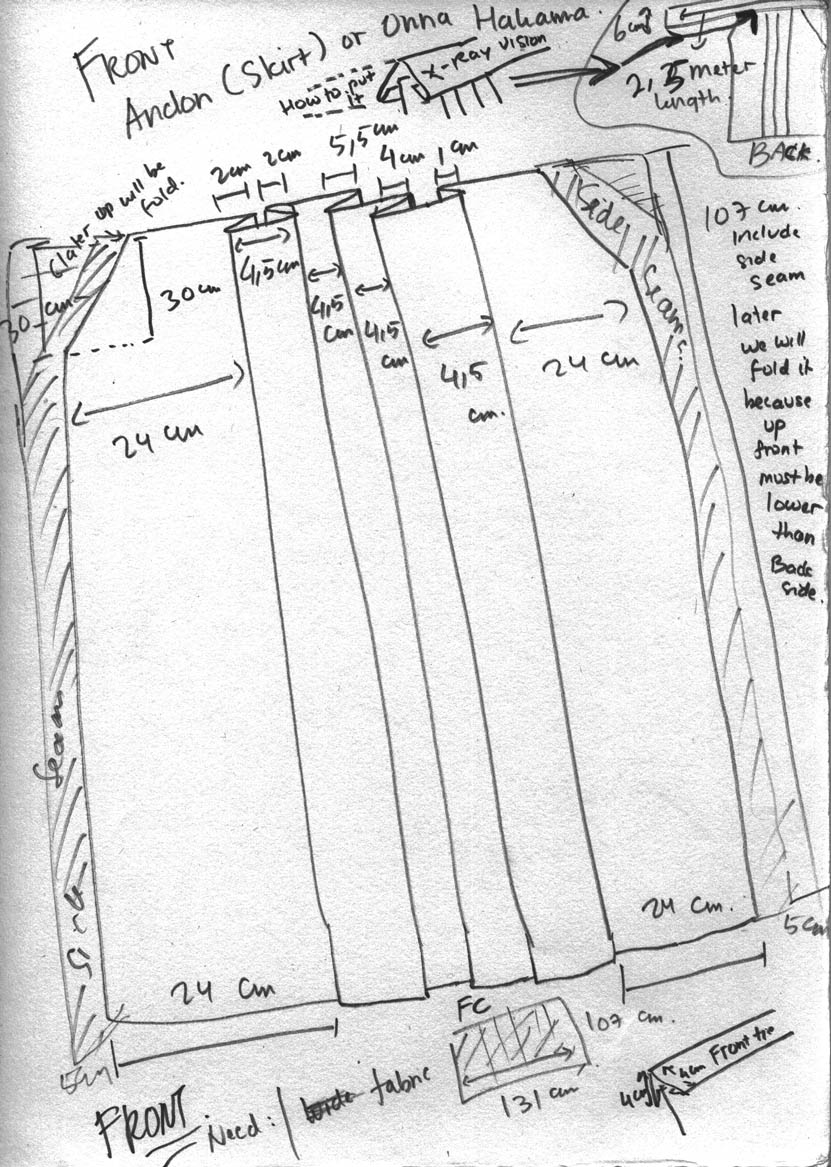 FRONT
Andon (Skirt) or Onna Hakama.
How to put it
X-ray vision
6 cm
2,5 meter
length.
BACK.
2 cm
2 cm
5,5 cm
4 cm
1 cm
(later up will be
fold.
30 cm
30 cm
4,5 cm
4,5
cm
4,5
cm
4,5
cm.
24 cm
24 cm
Side
Seams.
107 cm.
include
side
seam
later
we will
fold it
because
up
front
must be
lower
than
Back
side.
Side Seam
24 cm
24 cm.
5 cm
5 cm
FC
107 cm.
131 cm
Front tie
4 cm
4 cm
FRONT
Need: 1
fabric